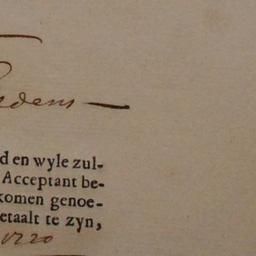 d en wyle zul-
Acceptant be-
komen genoe-
etaalt te zyn,
1720